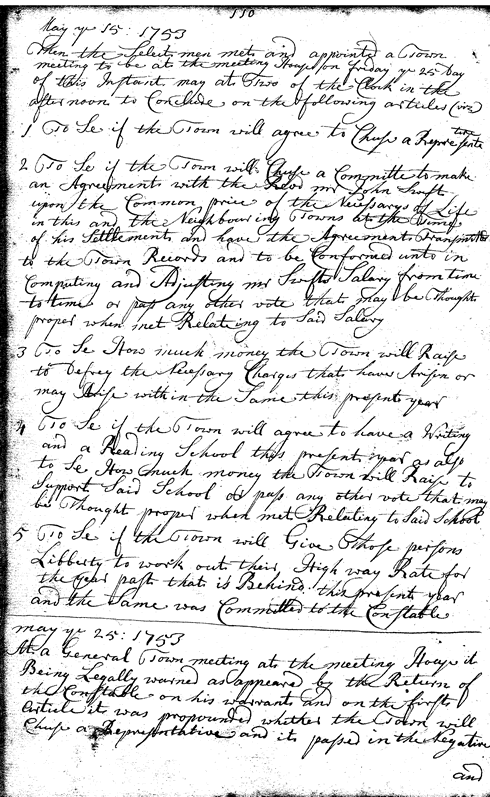 110
May ye 15: 1753
Then the Select men met and appointed a Town
meeting to be at the meeting House on Friday ye 25 Day
of this Instant may at Two of the Clock in the
afternoon to Conclude on the following articles (viz)
1 To Se if the Town will agree to Chuse a Representative
2 To Se if the Town will Chuse a Committe to make
an Agreements with the Revd mr John Swift
upon the Common price of the Necessarys of Life
in this and the Neighbouring Towns at the Time
of his Settlements and have the Agreement Transmitted
to the Town Records and to be Conformed unto in
Computing and Adjusting mr Swifts Salary from time
to time or pass any other vote that may be Thought
proper when met Relateing to Said Salary
3 To Se How much money the Town will Raise
to Defrey the Necessary Charges that have Arisen or
may Arise within the Same this present year
4 To Se if the Town will agree to have a Writing
and a Reading School this present year as also
to Se How much money the Town will Raise to
Support Said School or pass any other vote that may
be Thought proper when met Relating to Said School
5 To Se if the Town will Give Those persons
Libberty to work out their High way Rate for
the year past that is Behind this present year
and the Same was Committed to the Constable
may ye 25: 1753
At a General Town meeting at the meeting House it
Being Legally warned as appeared by the Return of
the Constable on his warrant and on the first
article it was propounded whether the Town will
Chuse a Representative and it passed in the Negative
and